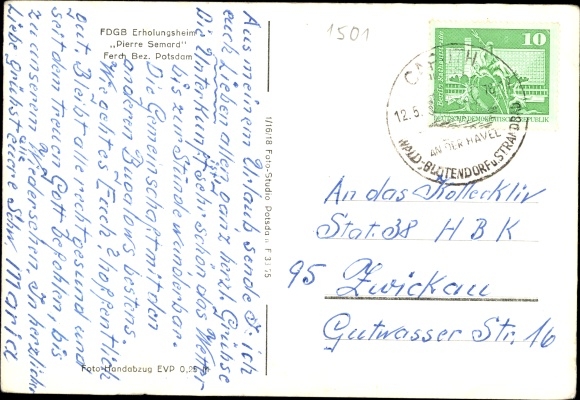 FDGB Erholungsheim
„Pierre Semard"
Ferch Bez. Potsdam
1501
10
Berlin Rathausstraße
DEUTSCHE DEMOKRATISCHE REPUBLIK
CAPUTH
12.5.
AN DER HAVEL
WALD-, BLÜTENDORF u. STRANDBAD
Aus meinem Urlaub sende ich
euch Lieben allen ganz herzl. Grüße
Die Unterkunft ist sehr schön das Wetter
bis zur Stunde wunderbar.
Die Gemeinschaft mit den
anderen Bugalows bestens.
Wie geht es Euch? hoffentlich
gut. Bleibt alle recht gesund und
seit dem treuen Gott befohlen, bis
zu unserem Wiedersehn. In herzlicher
Liebe grüßt euch alle eure Schw. Maria
1/16/18 Foto-Studio Potsdam F 31/75
Foto-Handabzug EVP 0,25 M
An das Kolleckliv
Stat. 38 HBK
95 Zwickau
Gutwasser Str. 16